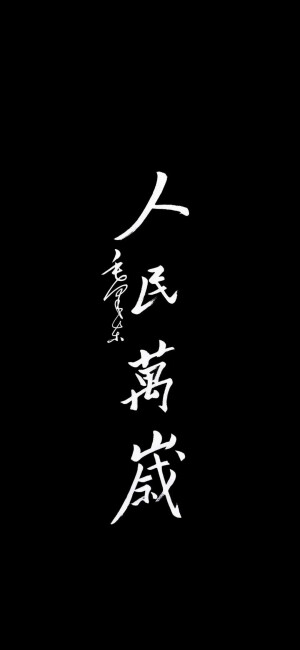 人民萬歲
毛澤东